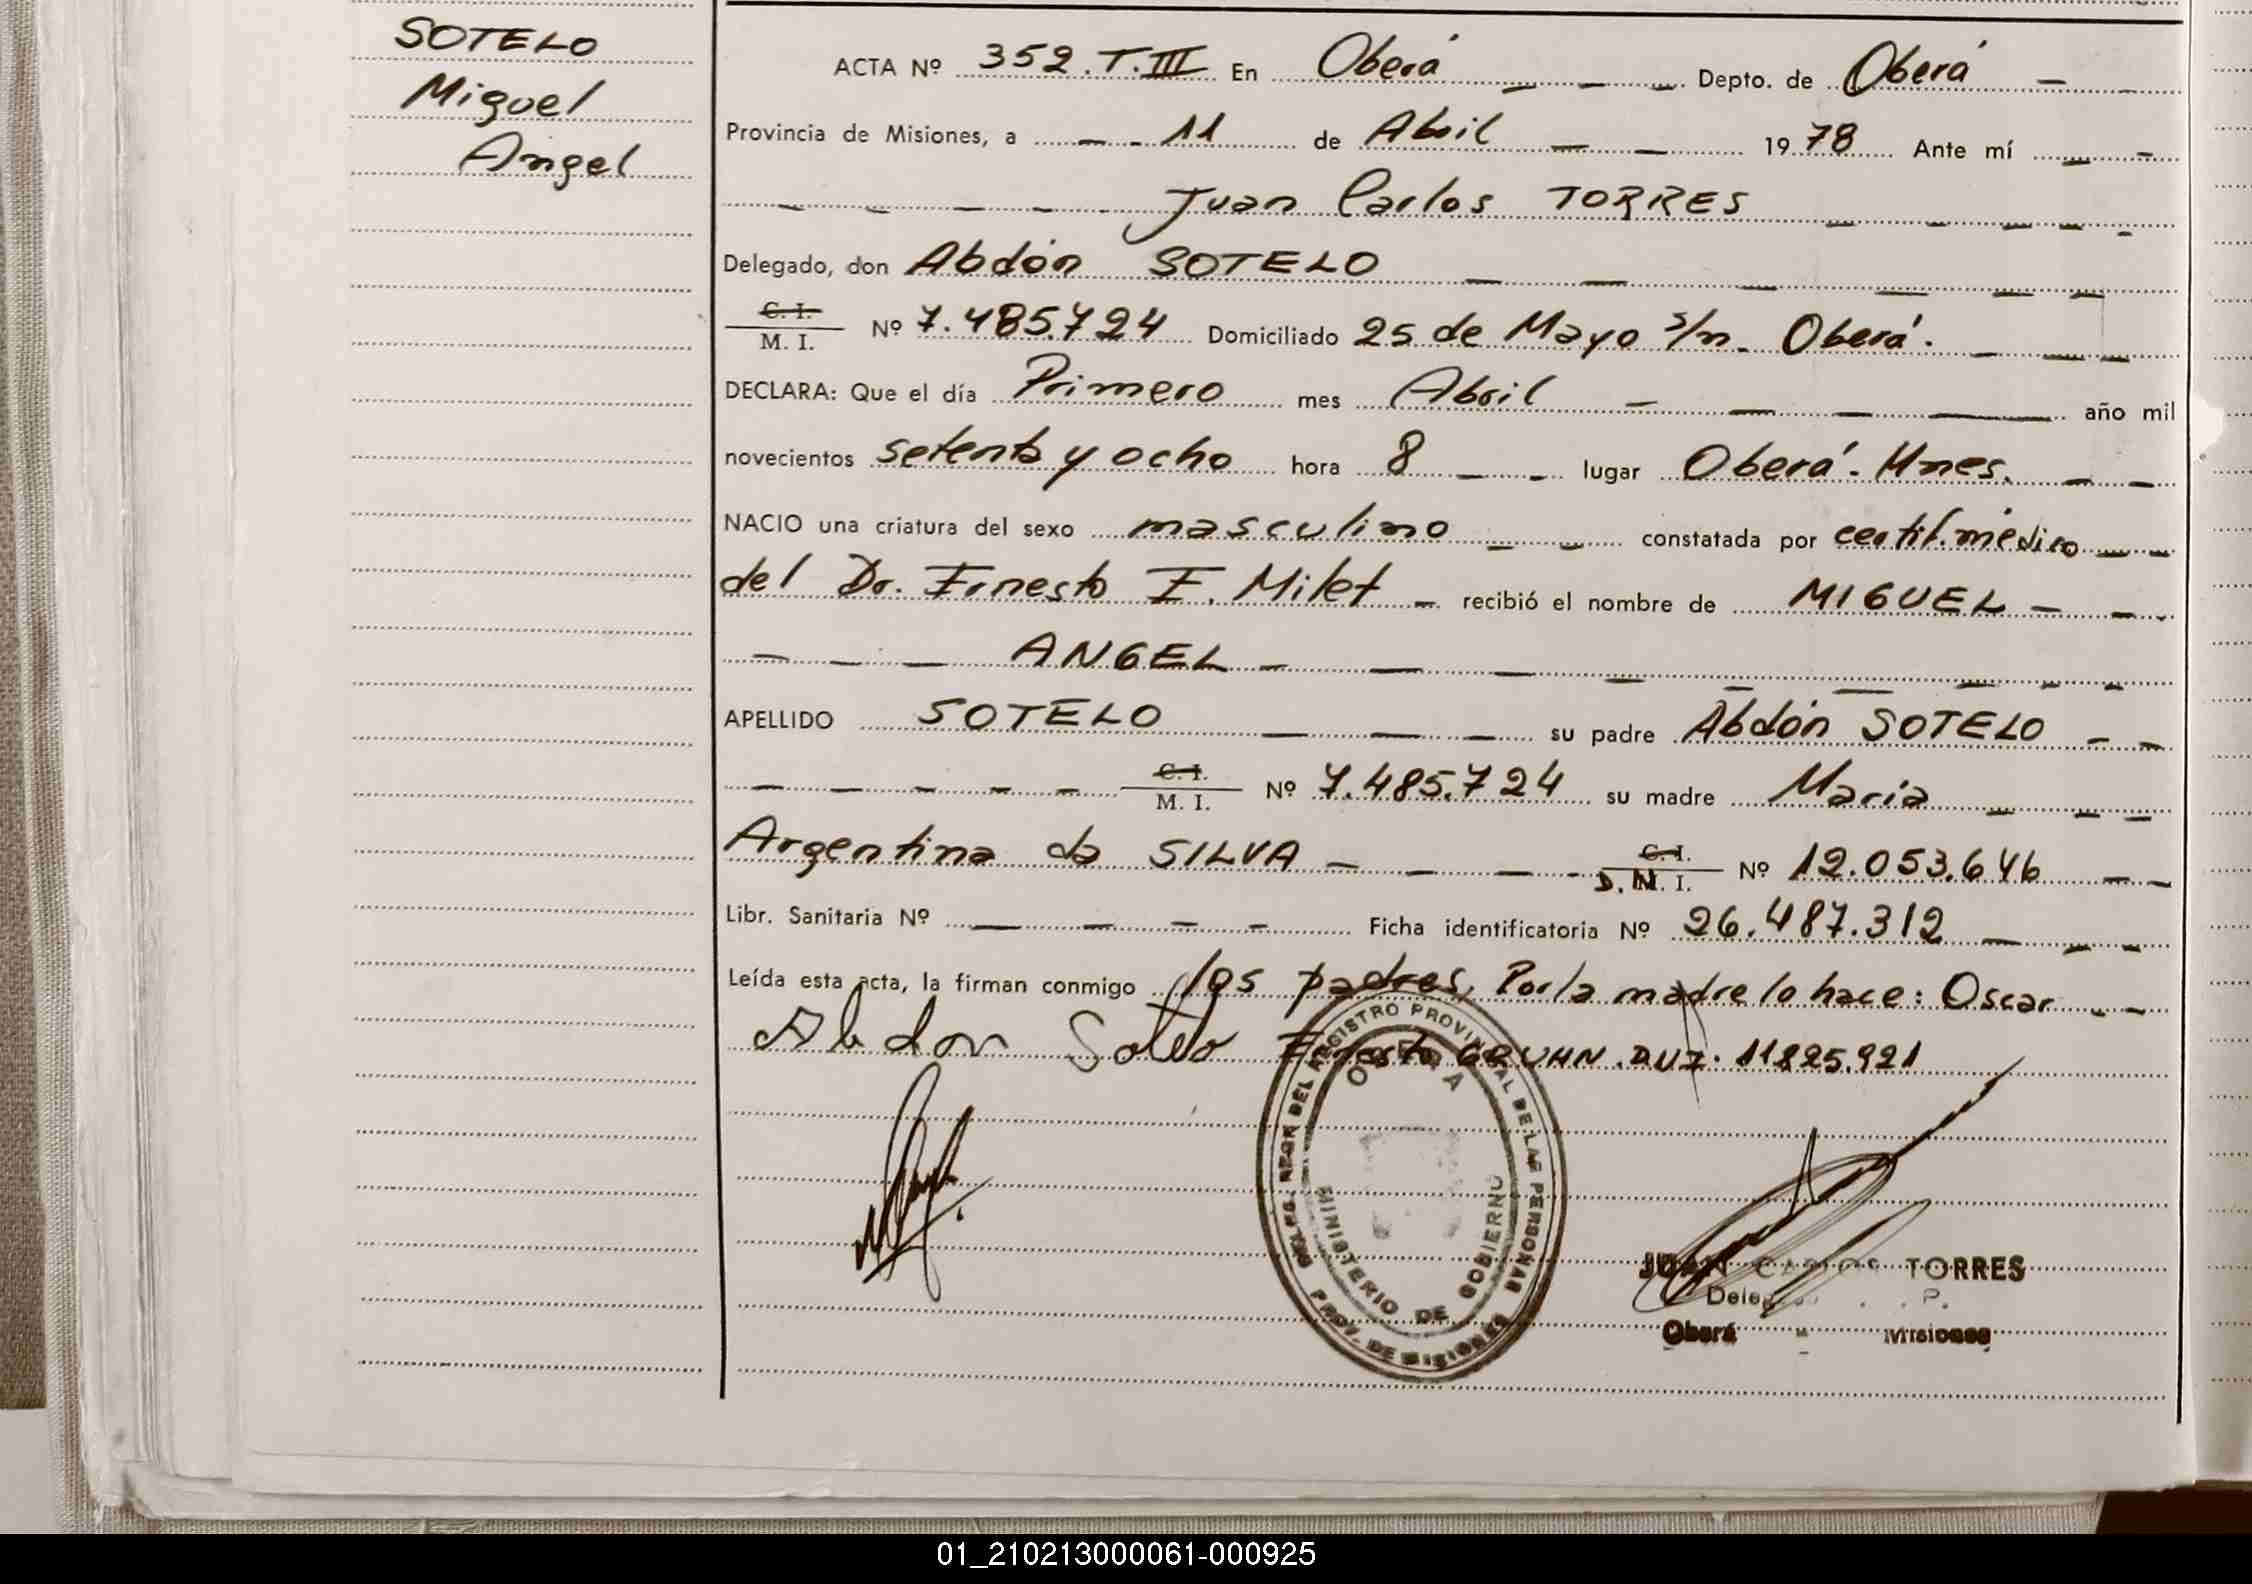 SOTELO
Miguel
Angel
ACTA Nº 352.T.III En Oberá Depto. de Oberá
Provincia de Misiones, a 11 de Abril 1978 Ante mí
Juan Carlos TORRES
Delegado, don Abdón SOTELO
C. I.
M. I. Nº 7.485.724 Domiciliado 25 de Mayo s/n. Oberá.
DECLARA: Que el día Primero mes Abril año mil
novecientos setenta y ocho hora 8 lugar Oberá - Mnes.
NACIO una criatura del sexo masculino constatada por certif. médico
del Dr. Ernesto E. Milet recibió el nombre de MIGUEL
ANGEL
APELLIDO SOTELO su padre Abdón SOTELO
C. I.
M. I. Nº 7.485.724 su madre María
Argentina da SILVA C. I.
D. N. I. Nº 12.053.646
Libr. Sanitaria Nº Ficha identificatoria Nº 26.487.312
Leída esta acta, la firman conmigo los padres, Por la madre lo hace: Oscar
Abdon Sotelo Ernesto GRUHN. 11825.921
REGISTRO PROVINCIAL DE LAS PERSONAS
OBERA
MINISTERIO DE GOBIERNO
PROV. DE MISIONES
JUAN CARLOS TORRES
Oberá - Misiones
01_210213000061-000925